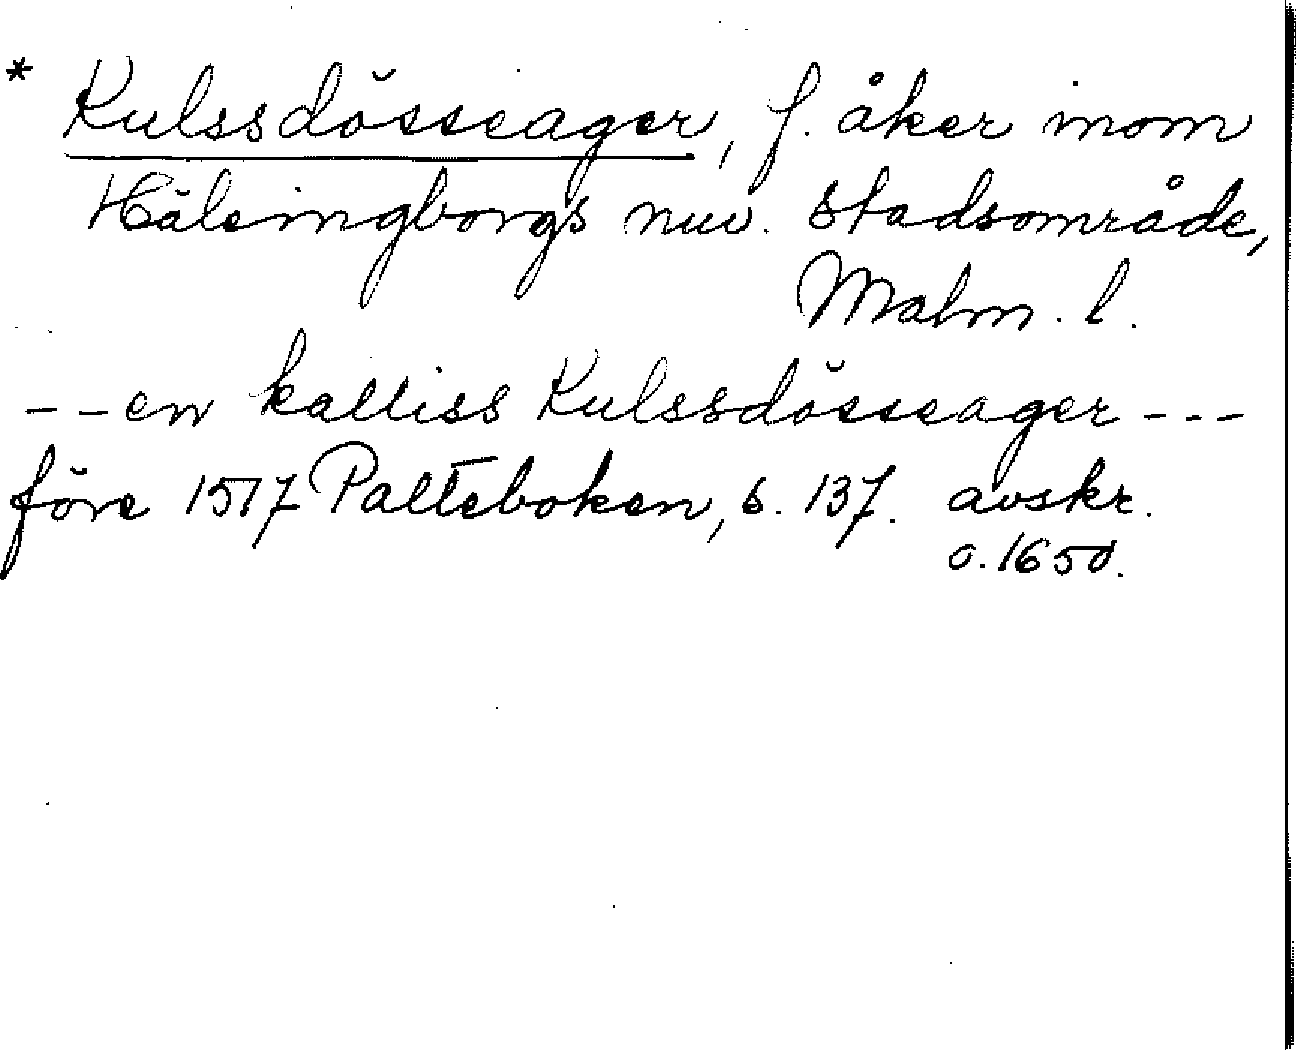 * Kulssdösseager, f. åker inom
Hälsingborgs nuv. stadsområde,
Malm. l.
- - en kalliss Kulssdösseager - - -
före 1517 Palteboken, s. 137. avskr.
o. 1650.